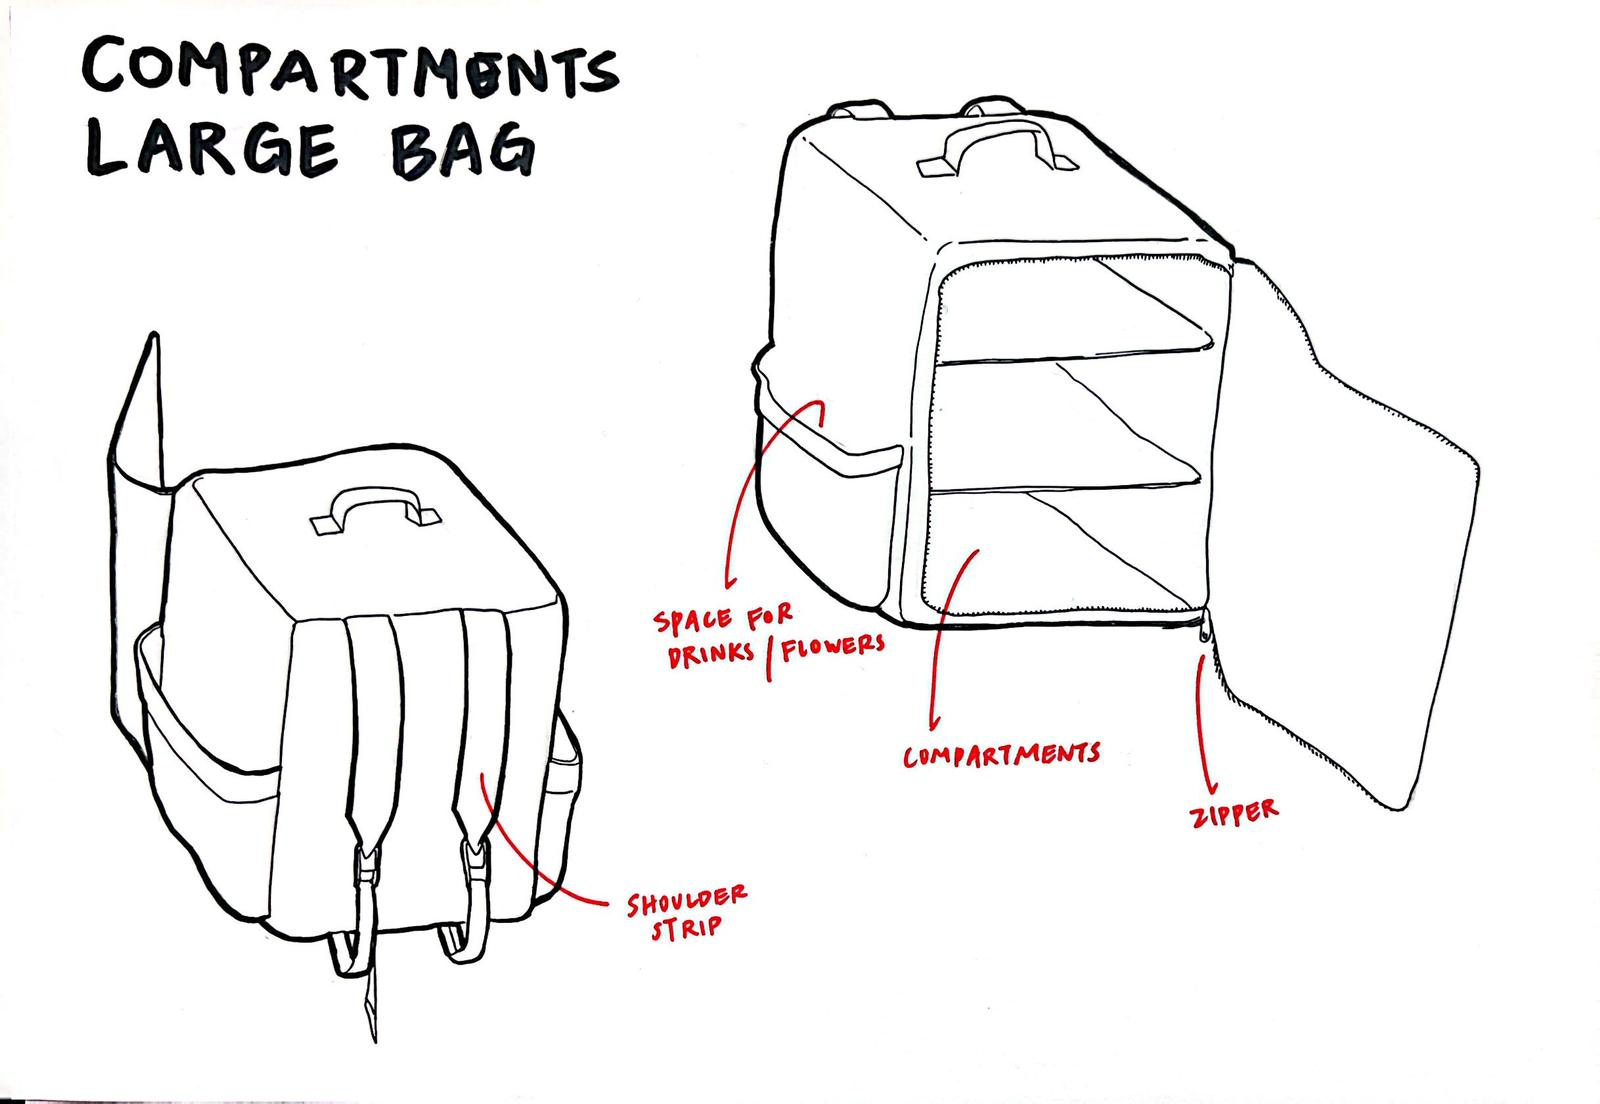 COMPARTMENTS
LARGE BAG
SPACE FOR
DRINKS / FLOWERS
COMPARTMENTS
ZIPPER
SHOULDER
STRIP